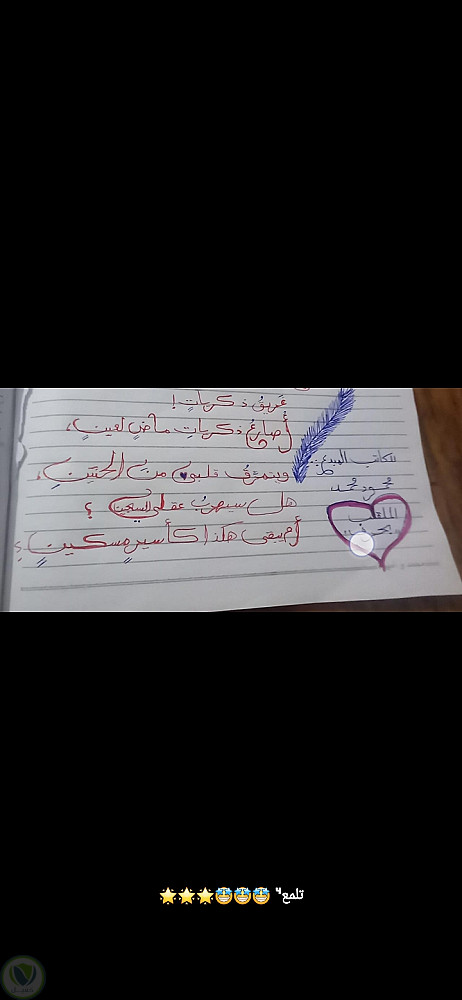 غَريقُ ذكرياتٍ!
أُصارعُ ذكرياتِ ماضٍ لعينٍ،
ويتمزقُ قلبي من الحنينِ،
هل سيهربُ عقلي السجين ؟
أم يبقى هكذا كأسيرٍ مسكينٍ؟
للكاتب المبدع..
محمود محمد
الملقب
تلمع" 🤩🤩🤩🌟🌟🌟